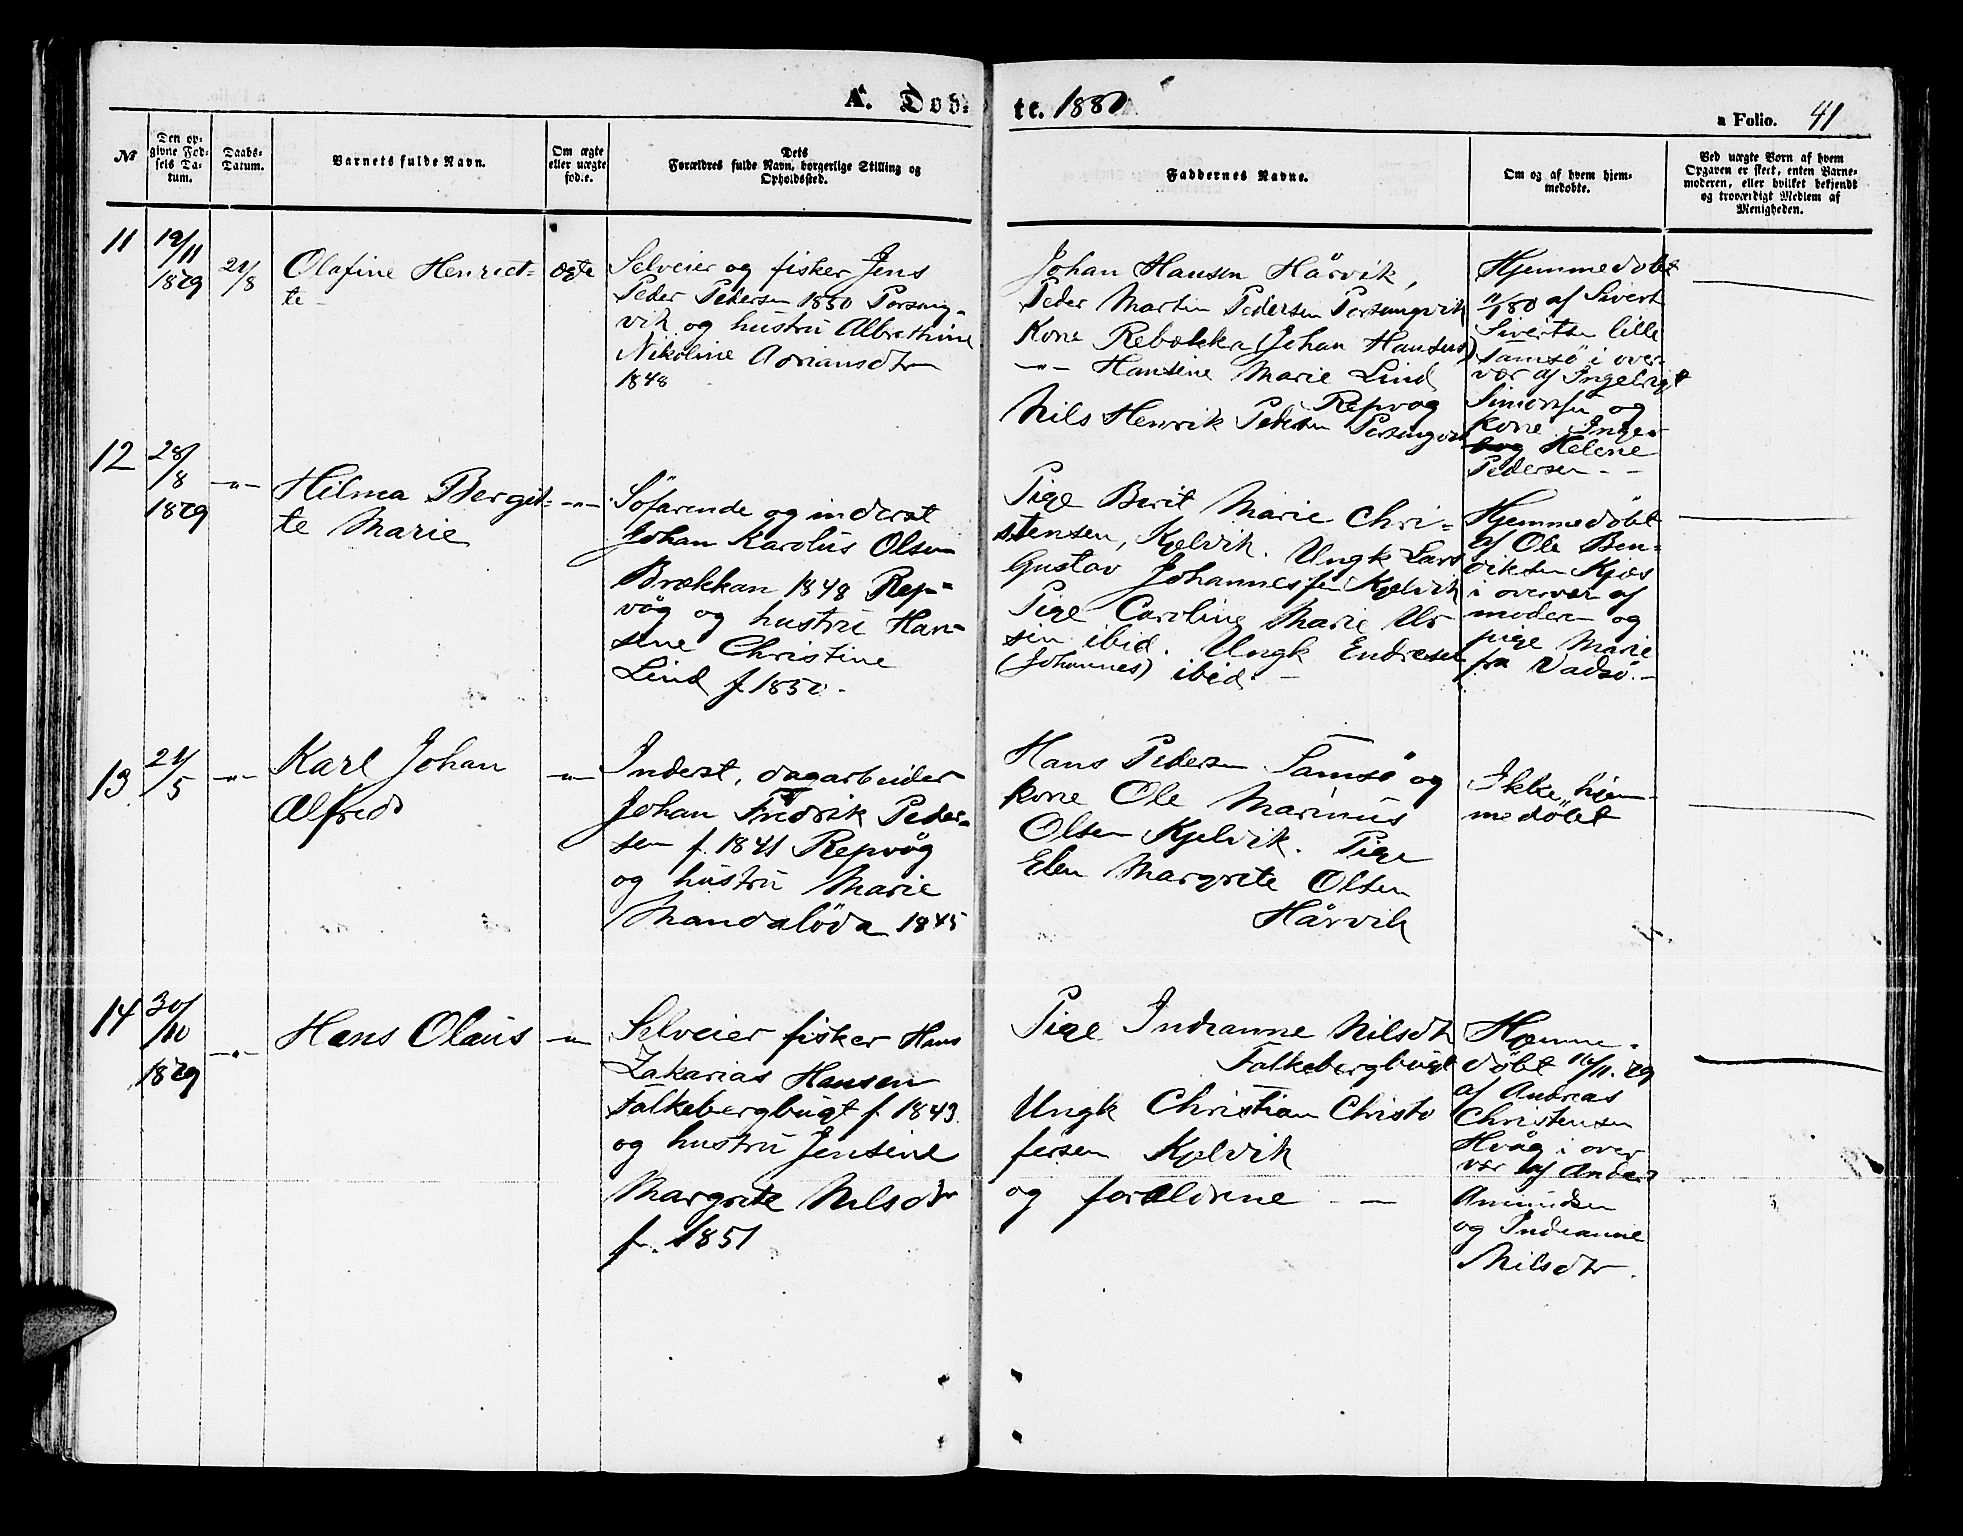 A. Døb-
te. 1880
a Folio. 41
№
Den op-
givne Fød-
sels Da-
tum.
Daabs-
Datum.
Barnets fulde Navn.
Om ægte
eller uægte
fød.e.
Dets
Forældres fulde Navn, borgerlige Stilling og
Opholdssted.
Faddernes Navne.
Om og af hvem hjem-
medøbte.
Ved uægte Børn af hvem
Opgaven er skeet, enten Barne-
moderen, eller hvilket bekjendt
og troværdigt Medlem af
Menigheden.
11
19/11
1879
21/8
Olafine Henriet-
te
Ægte
Selveier og fisker Jens
Peder Pedersen 1850 Porsang-
vik og hustru Albrethine
Nikoline Adriansdtr
1848
Johan Hansen Hårvik,
Peder Martin Pedersen Porsangvik
Kone Rebækka (Johan Hansens)
-"- Hansine Marie Lind
Repvog
Nils Henrik Pedersen Porsangvik
Hjemmedøbt
11/1 80 af Sivert
Sivertsen lille
Tamsø i over-
vær af Ingebrigt
Simonsen og
kone Inge-
borg Helene
Pedersen - -
12
28/8
1879
-"-
Hilma Bergit-
te Marie
-"-
Søfarende og inderst
Johan Karolus Olsen
Brækkan 1848 Rep-
våg og hustru Han-
sine Christine
Lind f 1850.-
Pige Berit Marie Chri-
stensen, Kjelvik. Ungk Lars
Gustav Johannessen Kjelvik
Pige Caroline Marie Ur
sin ibid. Ungk Endresen
(Johannes) ibid. -
Hjemmedøbt
af Ole Ben-
diksen Kjæs
i overvær af
moder og
pige Marie
fra Vadsø.-
13
21/5
-"-
Karl Johan
Alfred
-"-
Inderst, dagarbeider
Johan Fredrik Peder-
sen f. 1841 Repvåg
og hustru Marie
Mandaløda 1845
Hans Pedersen Tamsø og
kone Ole Marinus
Olsen Kjelvik. Pige
Elen Margrete Olsen
Hårvik
Ikke hjem-
medøbt
14
30/10
1879
-"-
Hans Olaus
-"-
Selveier fisker Hans
Zakarias Hansen
Falkebergbugt f. 1843
og hustru Jensine
Margrete Nilsdtr
f. 1851
Pige Indianne Nilsdtr
Falkebergbugt
Ungk Christian Christo
fersen Kjelvik
og forældrene - -
Hjemme-
døbt 16/11. 79
af Andreas
Christensen
Hvåg i over
vær af Anders
Amundsen
og Indianne
Nilsdtr.